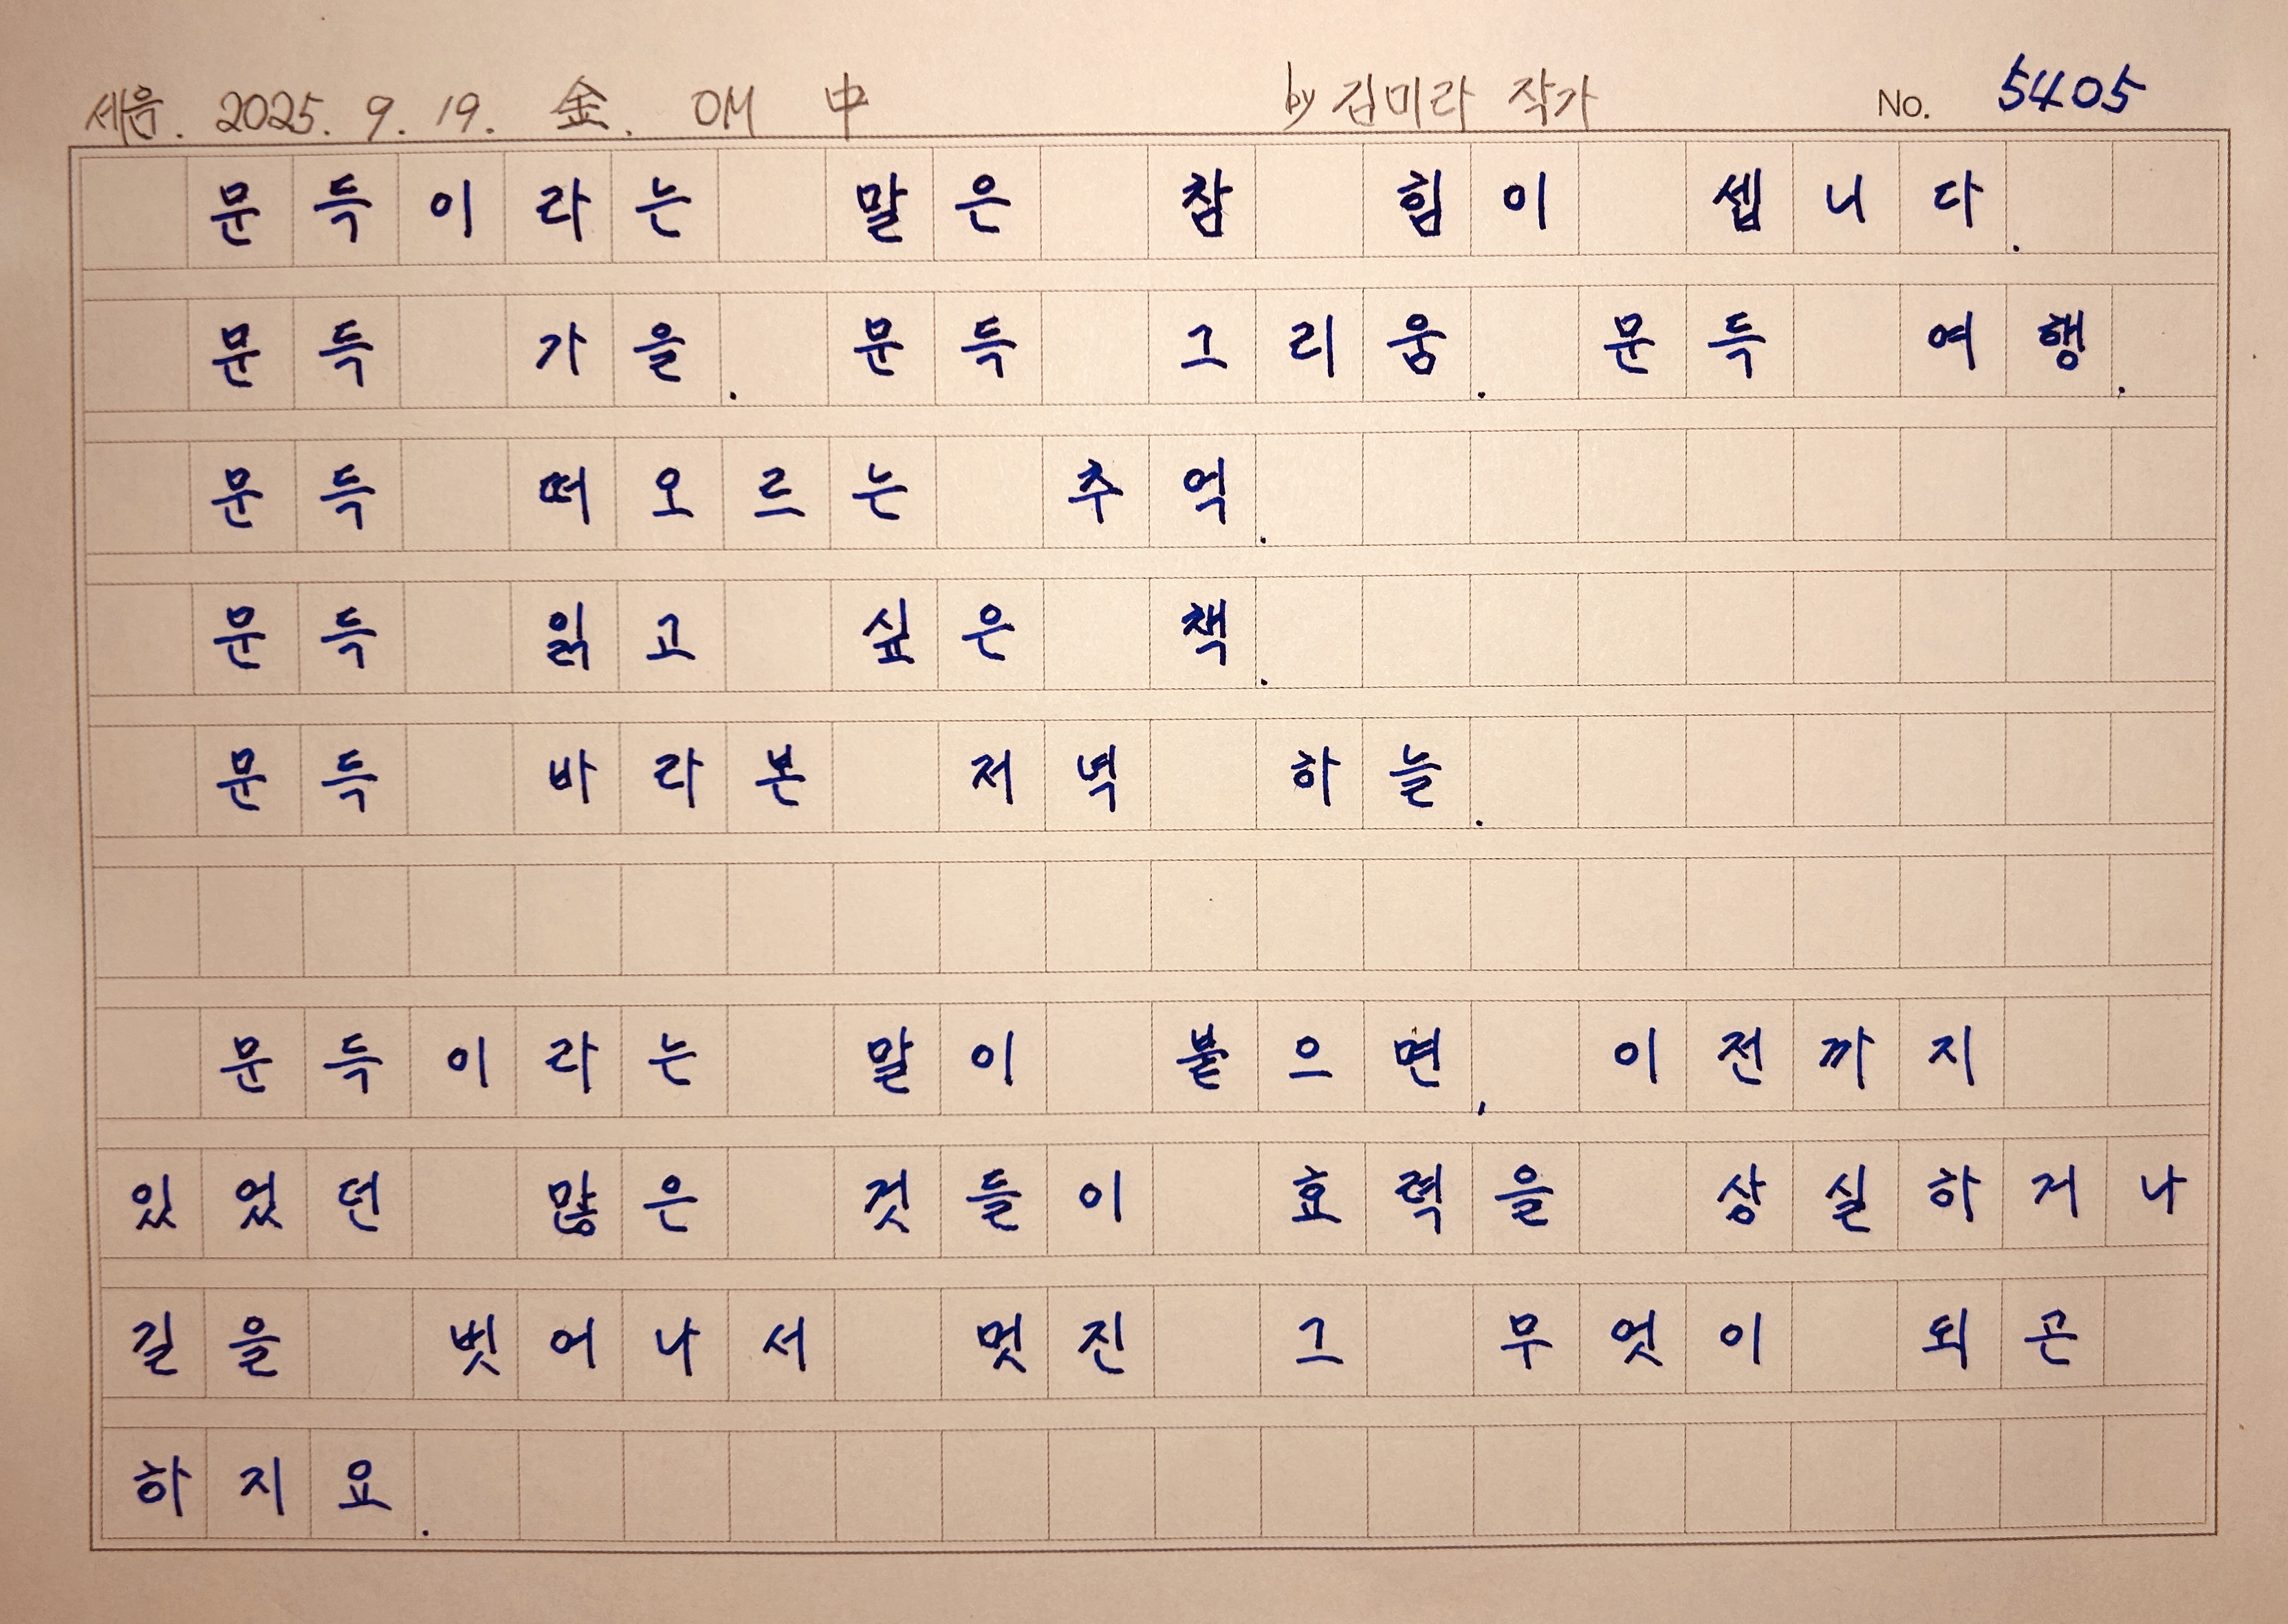 세음. 2025. 9. 19. 金. OM 中 by 김미라 작가 No. 5405
문득이라는 말은 참 힘이 셉니다.
문득 가을. 문득 그리움. 문득 여행.
문득 떠오르는 추억.
문득 읽고 싶은 책.
문득 바라본 저녁 하늘.
문득이라는 말이 붙으면, 이전까지
있었던 많은 것들이 효력을 상실하거나
길을 벗어나서 멋진 그 무엇이 되곤
하지요.